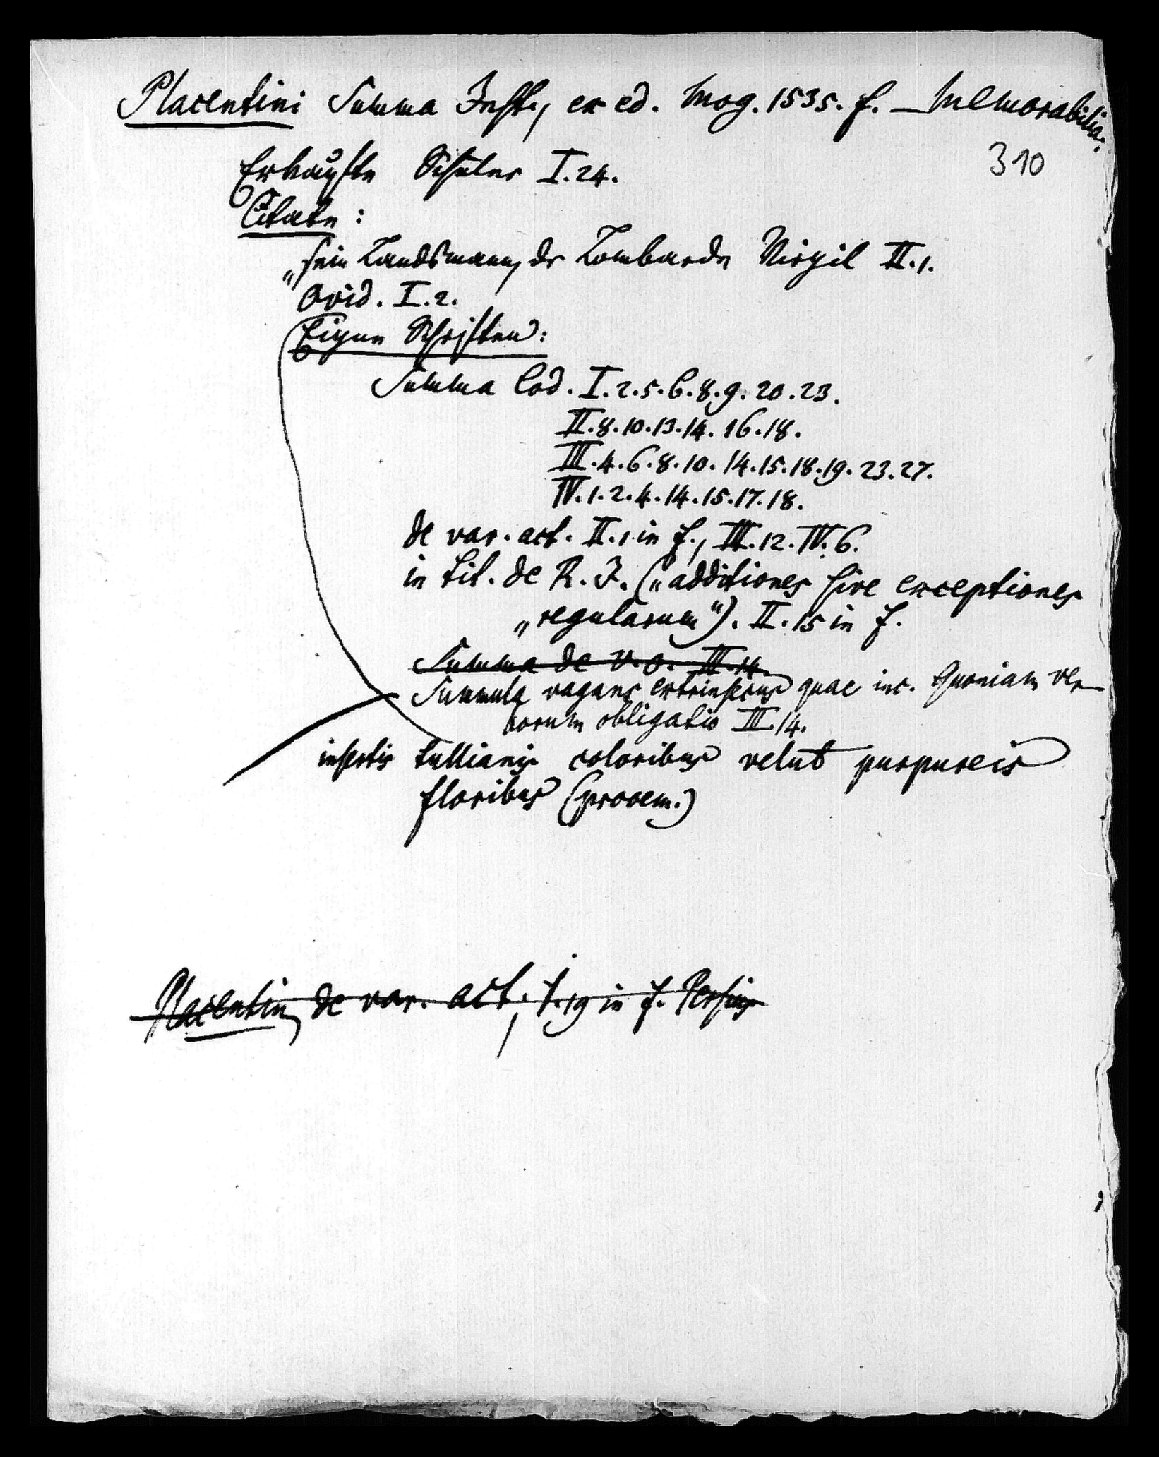 Placentini Summa Inst., ex ed. Mog. 1535. f. — Memorabilia.
310
Erkaufte Schüler I.24.
Citate:
„sein Landsmann, der Lombarde Virgil II.1.
Ovid. I.2.
Eigene Schriften:
Summa Cod. I.2.5.6.8.9.20.23.
II.8.10.13.14.16.18.
III.4.6.8.10.14.15.18.19.23.27.
IV.1.2.4.14.15.17.18.
de var. act. II.1 in f., III.12. IV.6.
in tit. de R. J. („additiones sive exceptiones
„regularum“). II.15 in f.
Summa de v. o. III.14.
Summula vagans extrinsecus quae inc. Quoniam ver-
borum obligatio III.14.
insertis tullianis coloribus velut purpureis
floribus (prooem.)
Placentin, de var. act., I.19 in f. Persius